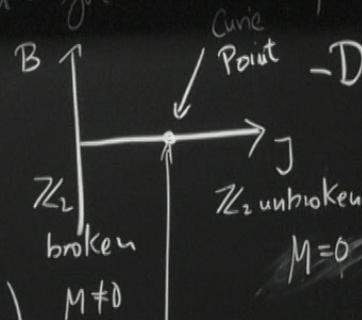 Curie
Point
B
-D
J
ℤ₂
broken
M≠0
ℤ₂ unbroken
M=0